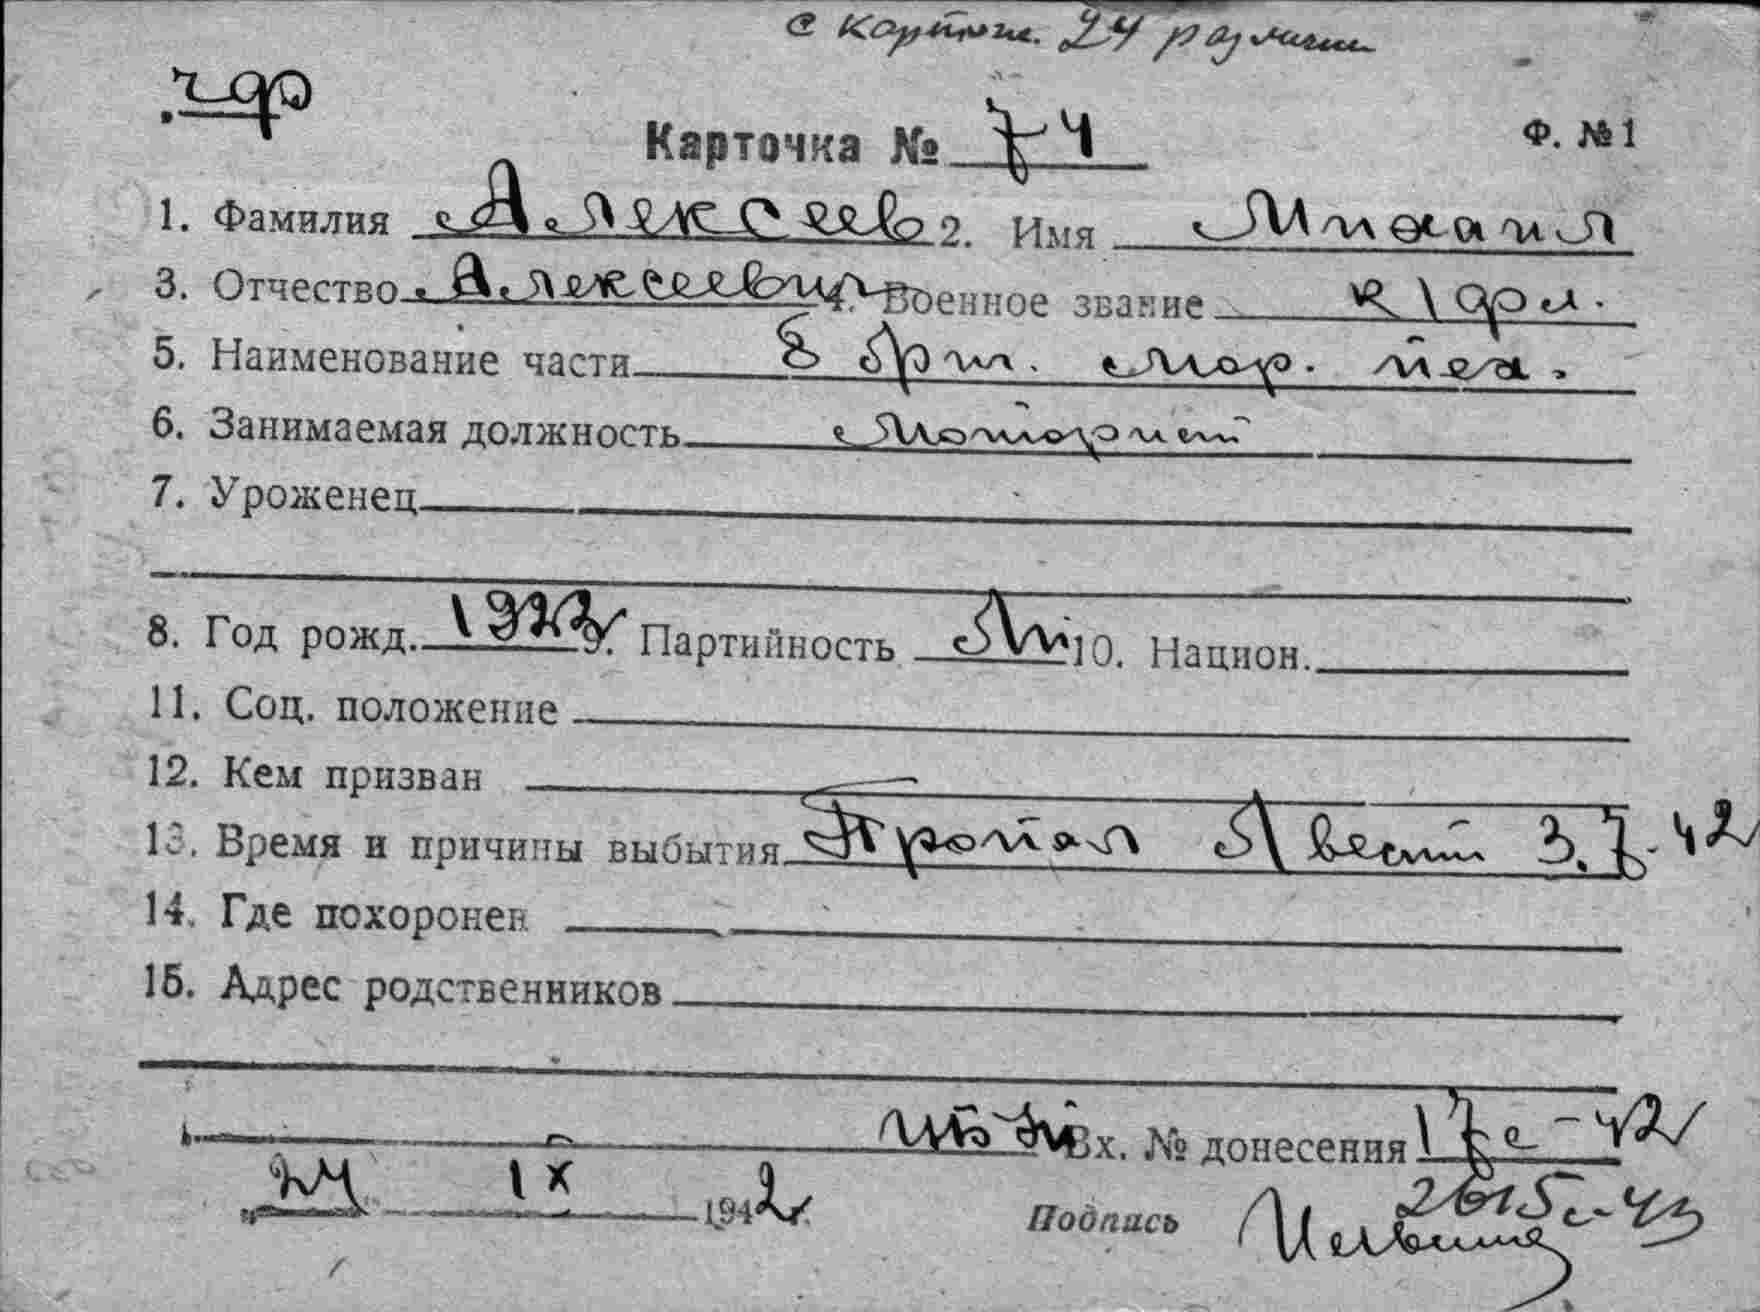 с картот. 24
чф
Карточка № 74 Ф. №1
1. Фамилия Алексеев 2. Имя Михаил
3. Отчество Алексеевич 4. Военное звание к/фл.
5. Наименование части 8 бриг. мор. пех.
6. Занимаемая должность моторист
7. Уроженец
8. Год рожд. 1922 9. Партийность 10. Национ.
11. Соц. положение
12. Кем призван
13. Время и причины выбытия Пропал без вести 3.7.42
14. Где похоронен
15. Адрес родственников
Вх. № донесения 17с-42
24 IX 1942 г. Подпись
2615с-43